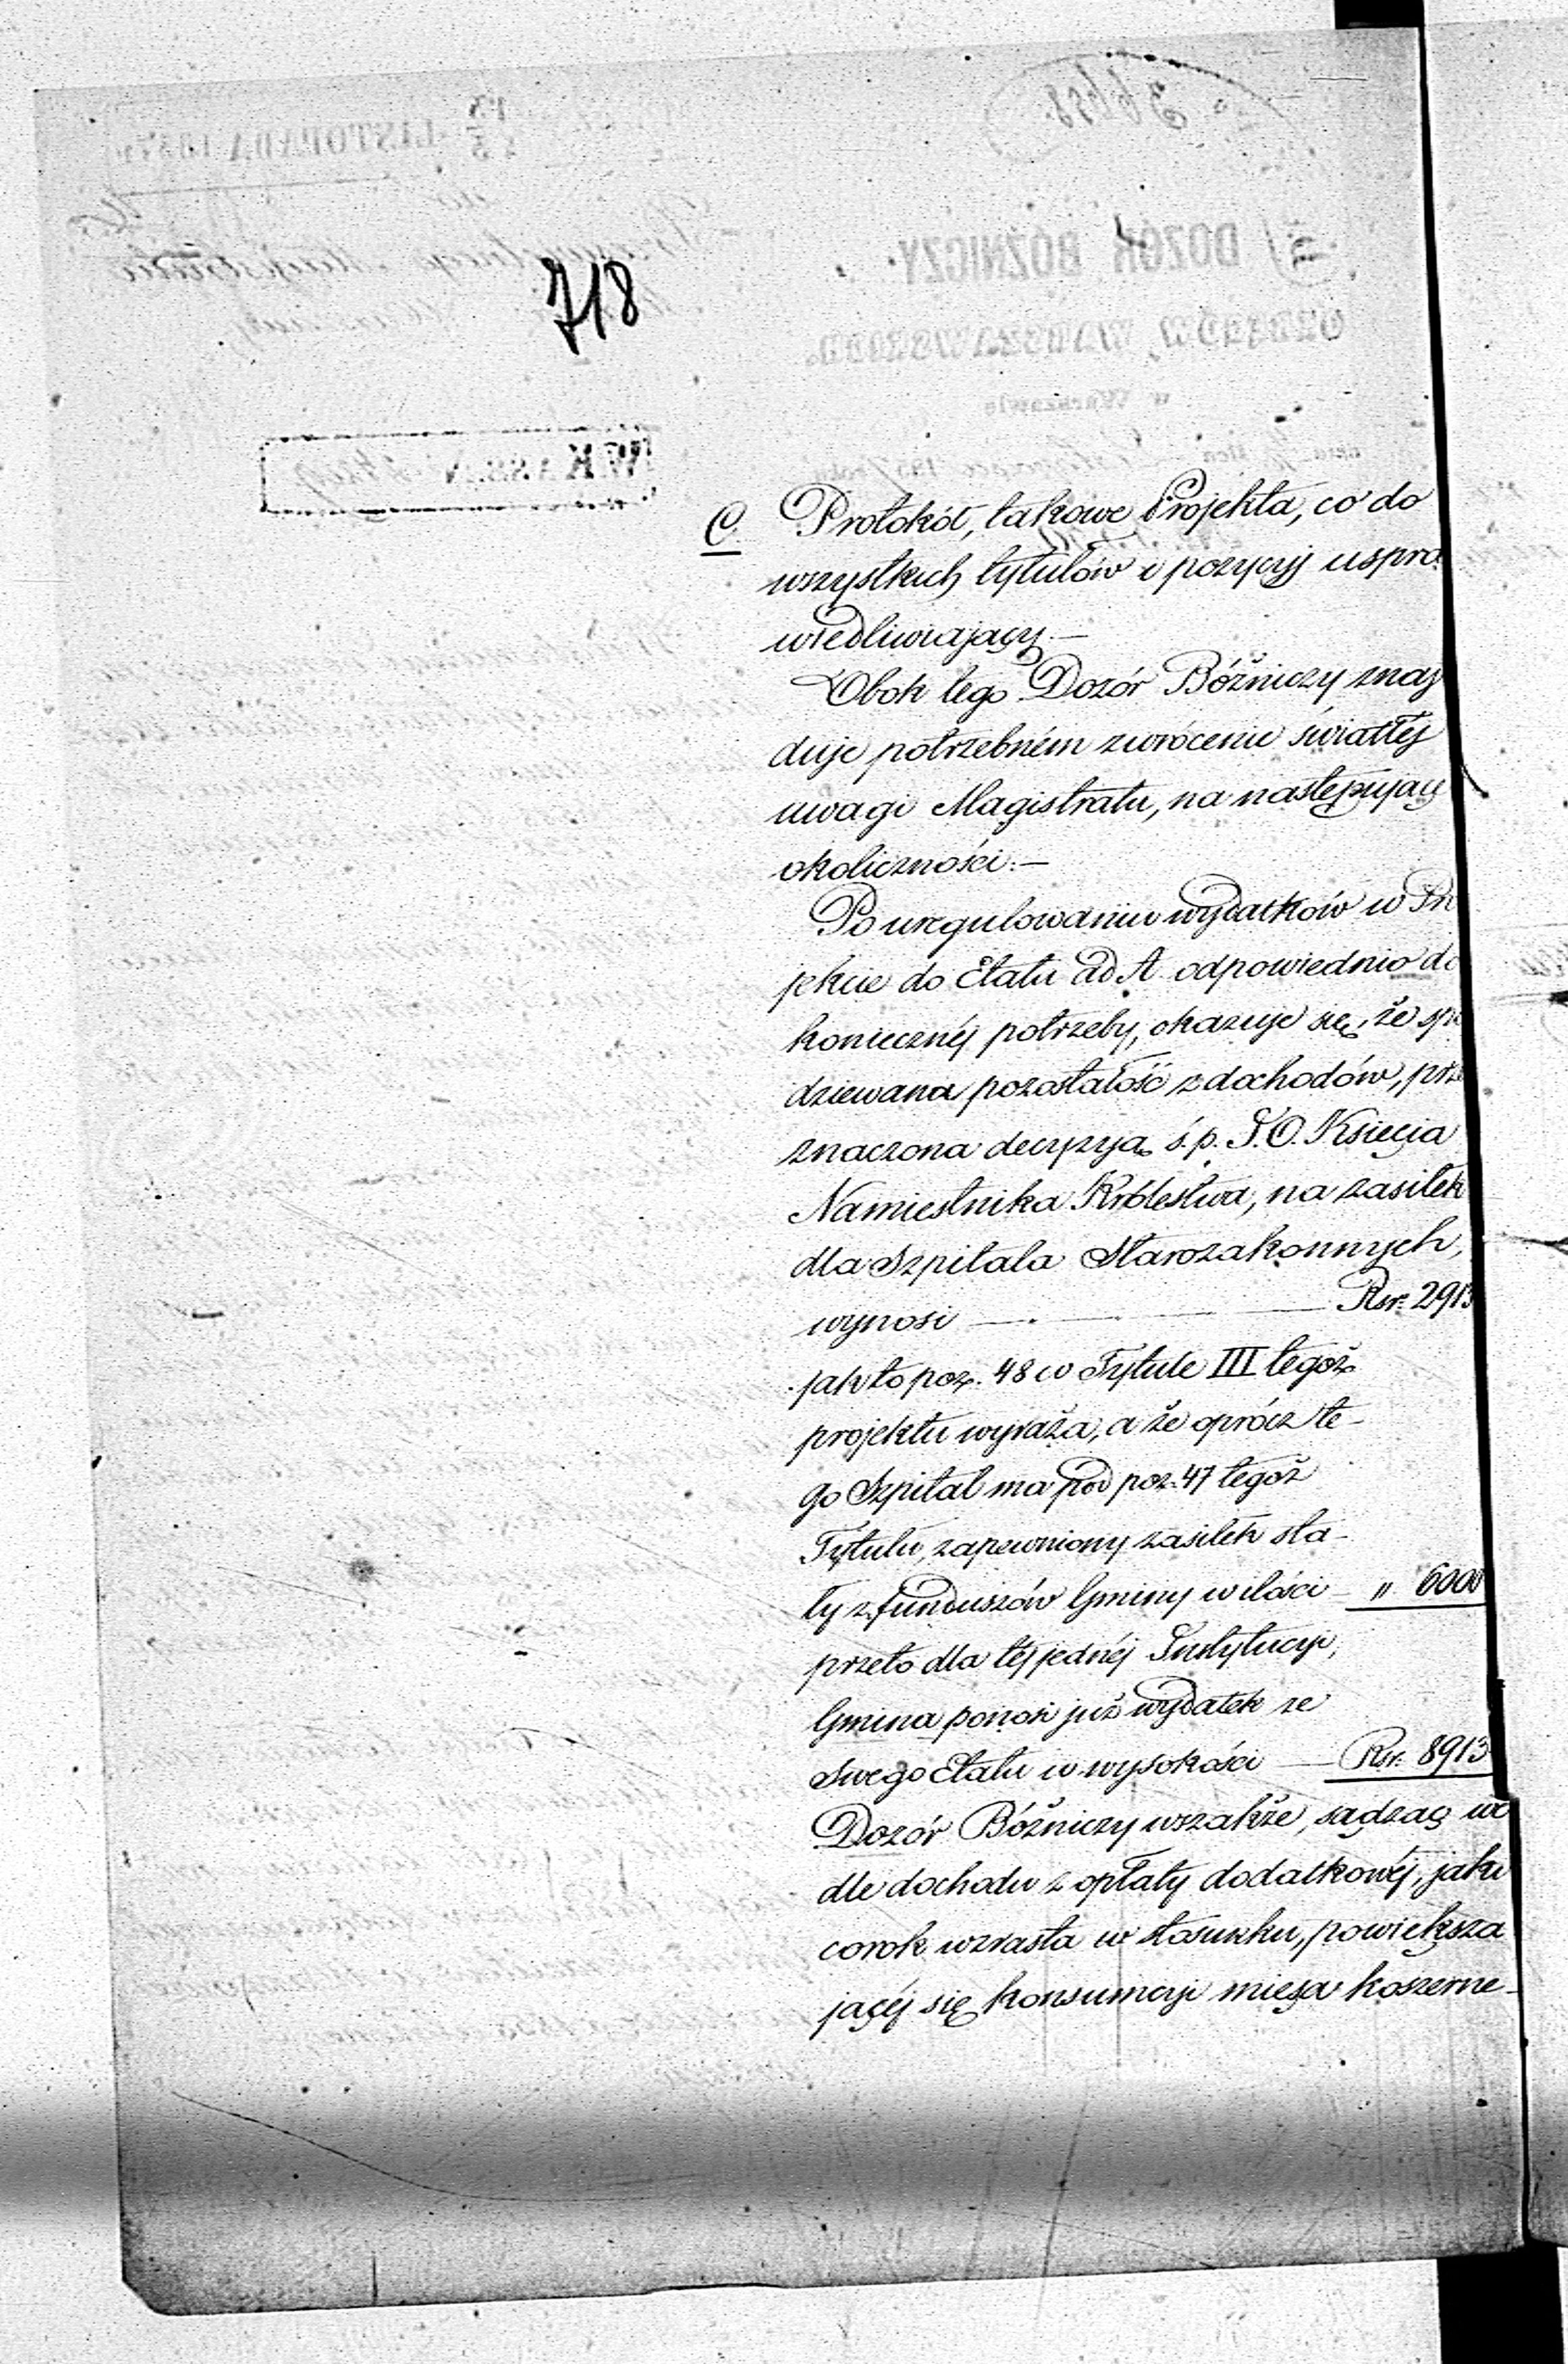 718
C. Protokół, takowe Projekta, co do
wszystkich tytułów i pozycyj uspra
wiedliwiający.—
Obok tego Dozór Bóżniczy znaj
duje potrzebném zwrócenie światłéj
uwagi Magistratu, na następujące
okoliczności:—
Po uregulowaniu wydatków w Pro
jekcie do Etatu ad A odpowiednio do
koniecznéj potrzeby, okazuje się, że spo
dziewana pozostałość z dochodów, prze
znaczona decyzyą ś.p. J.O. Księcia
Namiestnika Królestwa, na zasiłek
dla Szpitala Starozakonnych,
wynosi — Rsr. 2913
jak to poz. 48 w Tytule III tegoż
projektu wyraża, a że oprócz te-
go Szpital ma pod poz. 47 tegoż
Tytułu, zapewniony zasiłek sta-
ły z funduszów Gminy w ilości — " 6000
przeto dla téj jednéj Instytucyi,
Gmina ponosi już wydatek ze
swego Etatu w wysokości — Rsr. 8913
Dozór Bóżniczy wszakże, sądząc we
dle dochodu z opłaty dodatkowéj, jaki
corok wzrasta w stosunku, powiększa
jącéj się konsumcyi mięsa koszerne-